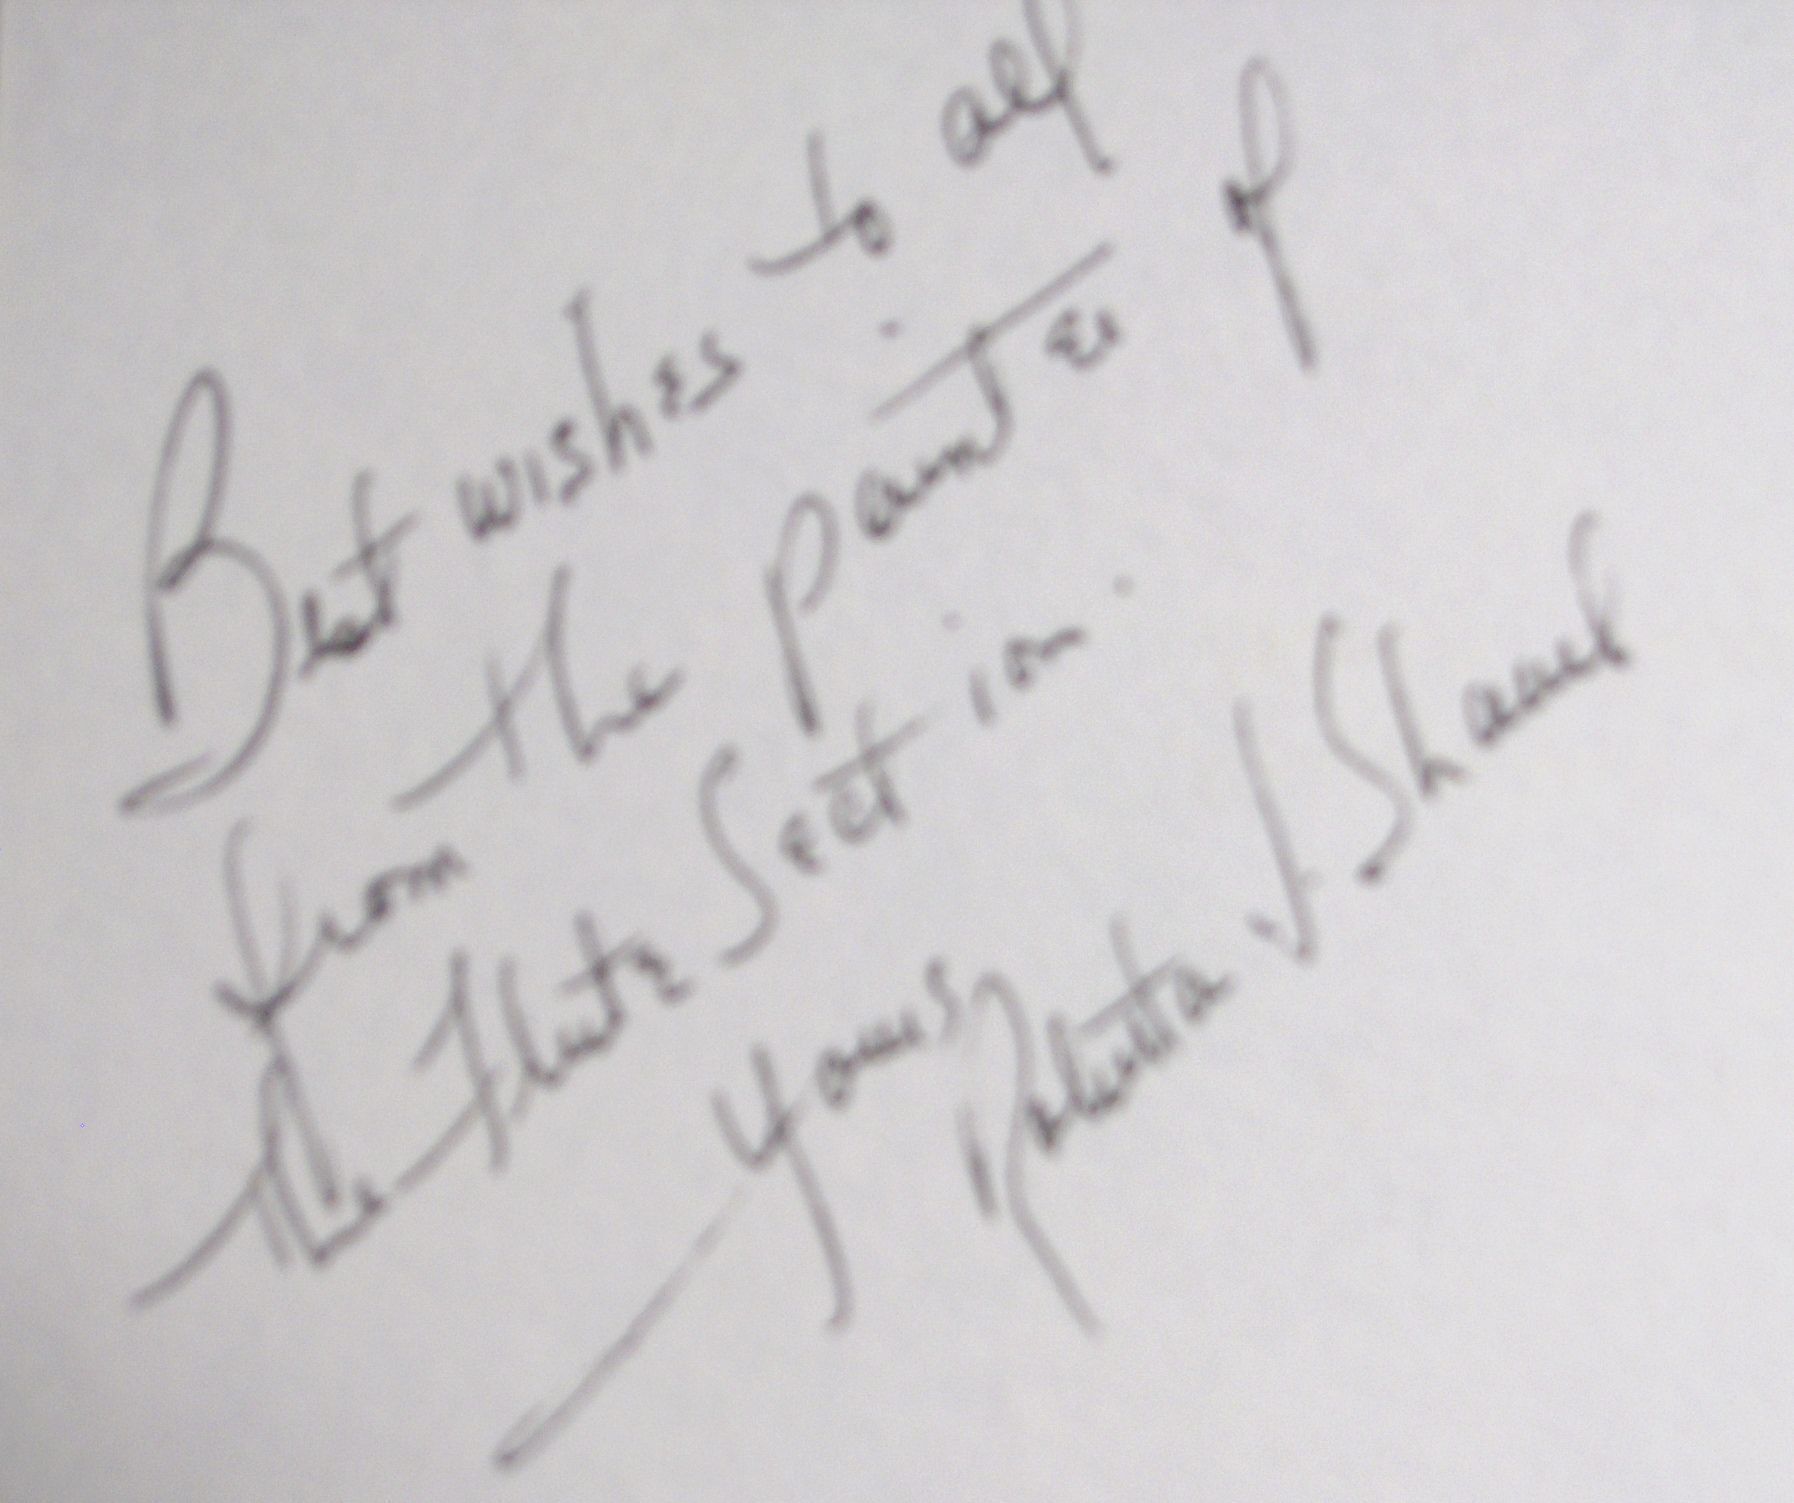 Best wishes to all
from the Painter of
The Flute Section.
Yours